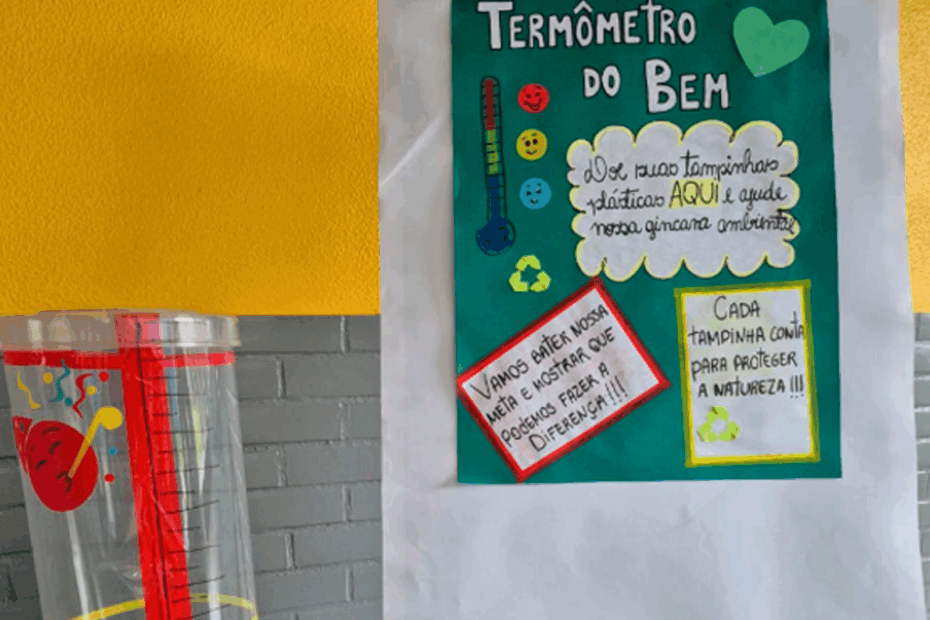 TERMÔMETRO
DO BEM
Doe suas tampinhas
plásticas AQUI e ajude
nossa gincana ambiental
VAMOS BATER NOSSA
META E MOSTRAR QUE
PODEMOS FAZER A
DIFERENÇA!!!
CADA
TAMPINHA CONTA
PARA PROTEGER
A NATUREZA!!!